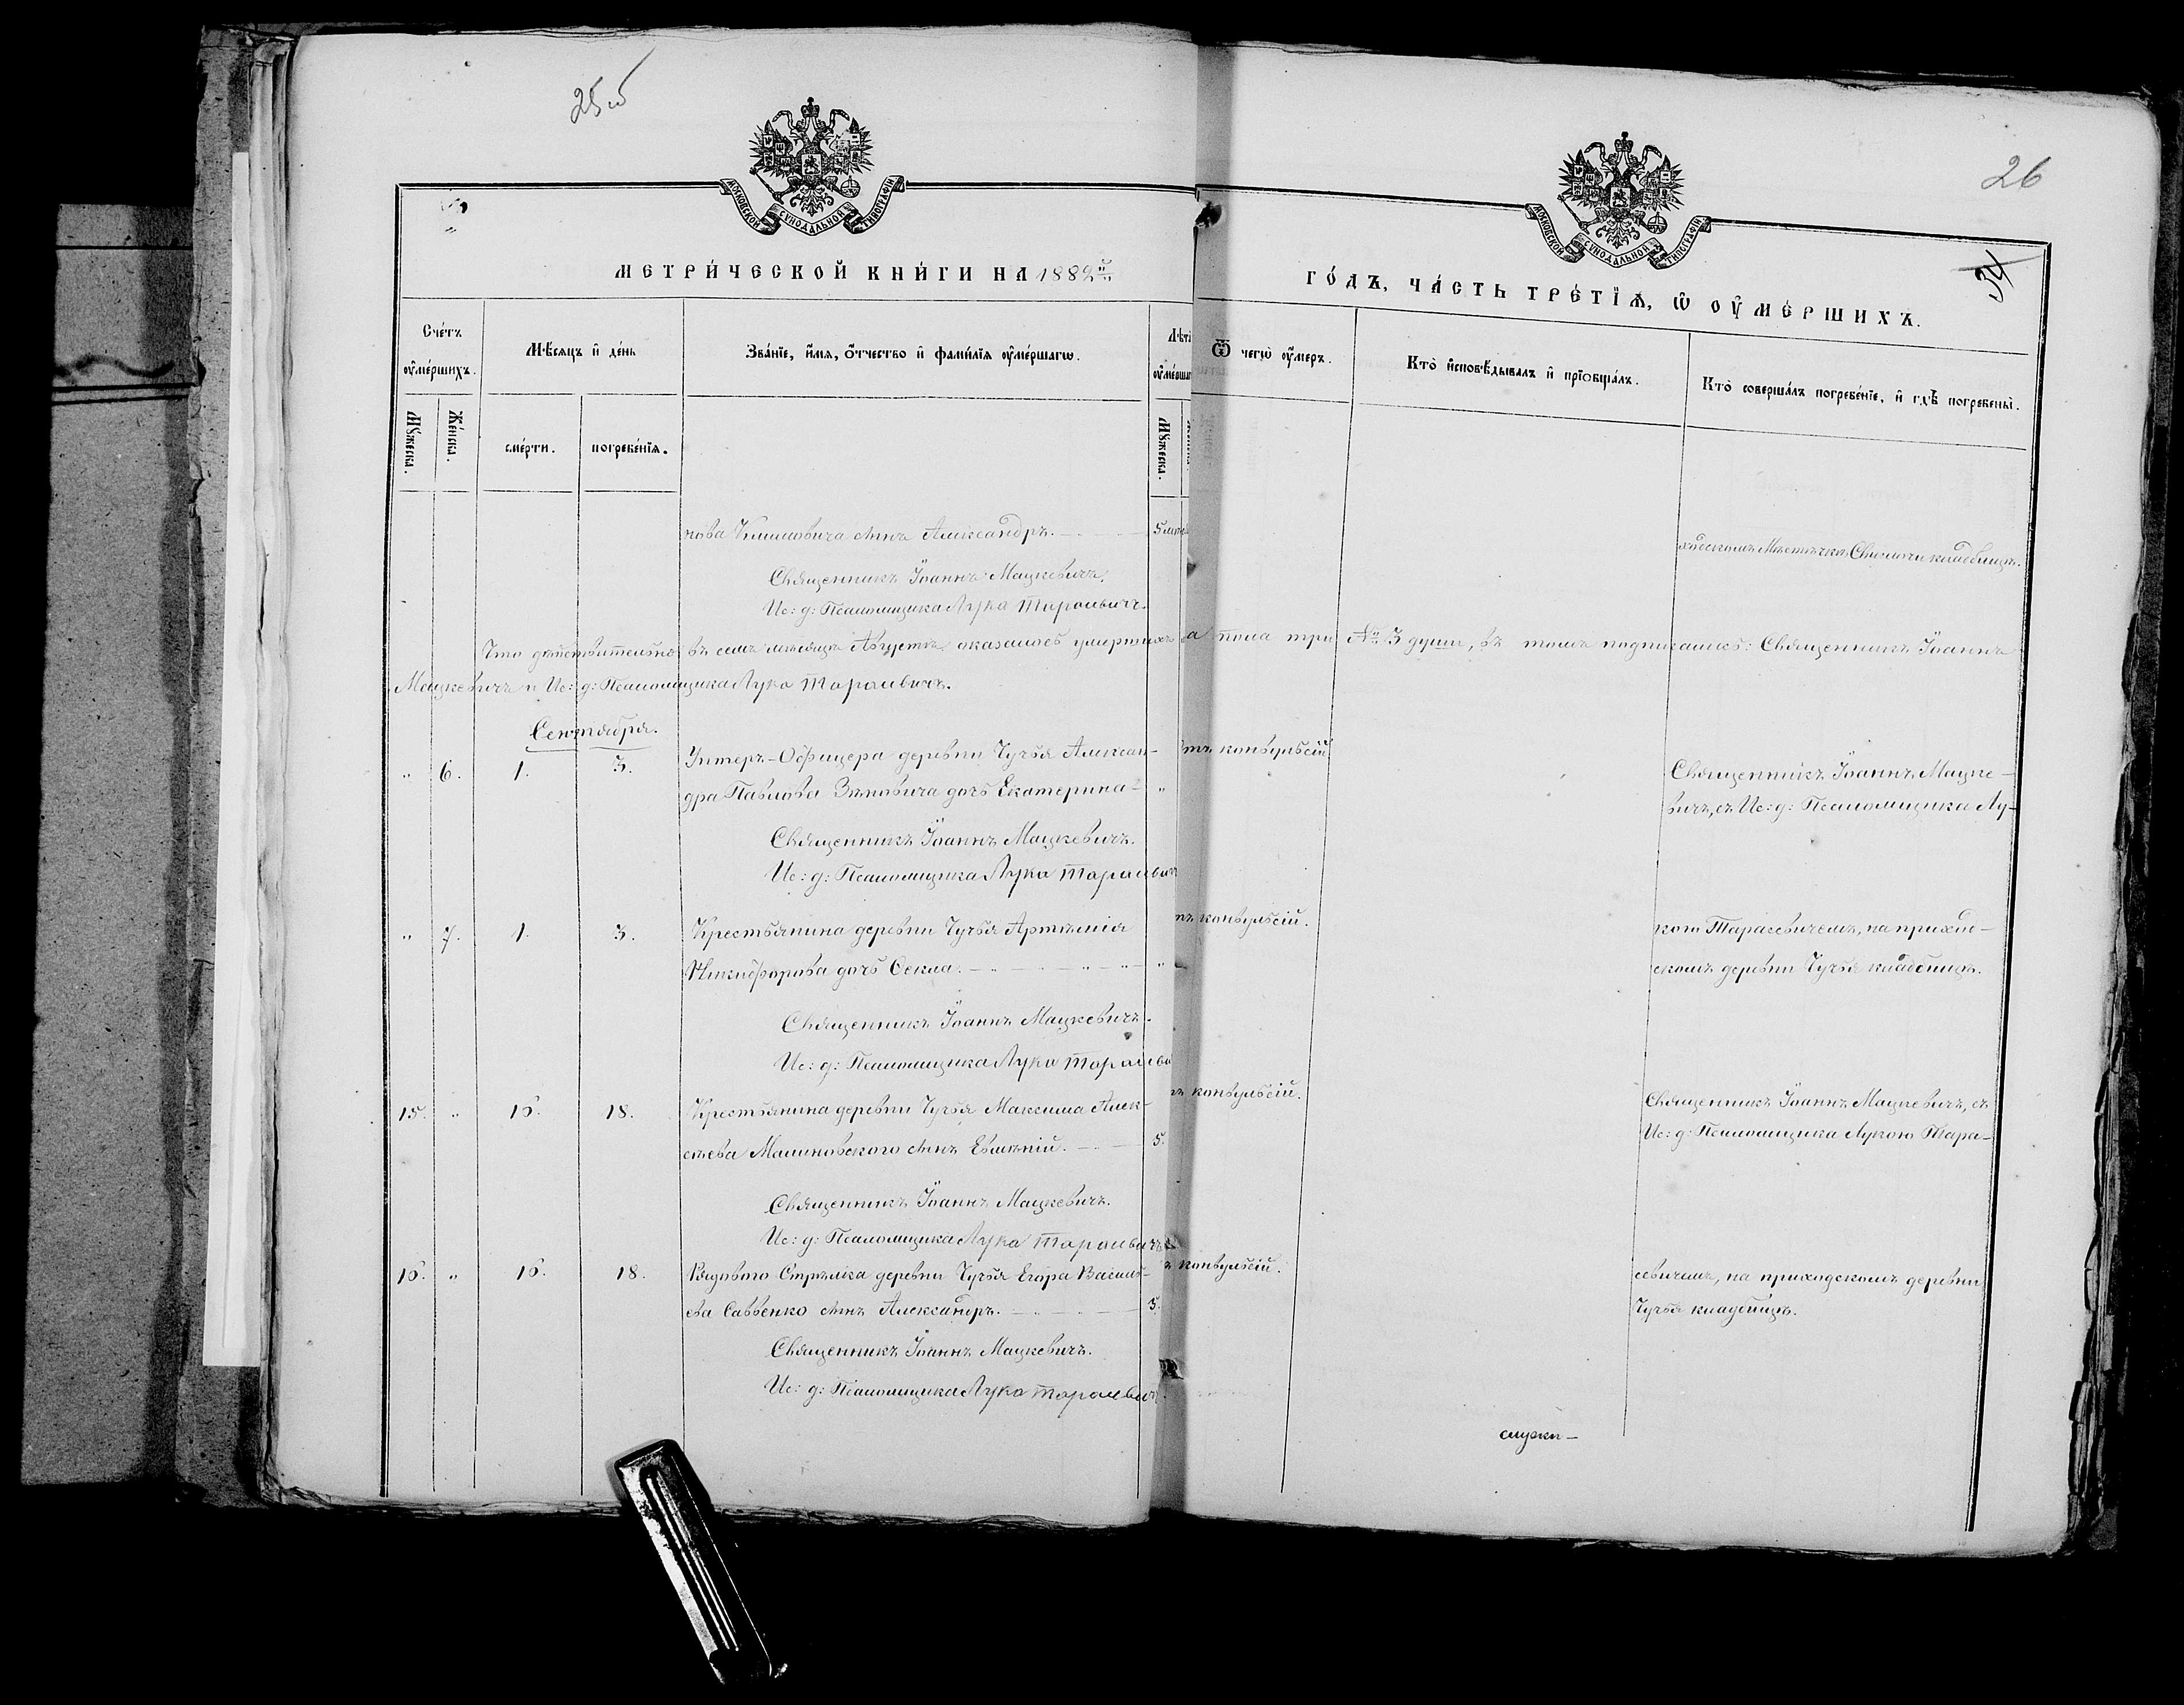 25 об
26
34
МОСКОВСКОЙ СѴНОДАЛЬНОЙ ТИПОГРАФІИ
МОСКОВСКОЙ СѴНОДАЛЬНОЙ ТИПОГРАФІИ
МЕТРИ́ЧЕСКОЙ КНИ́ГИ НА 1882й
ГО́ДЪ, ЧА́СТЬ ТРЕ́ТЇѦ, Ѡ ОУ҆МЕ́РШИХЪ.
Сче́тъ оу҆ме́ршихъ.
Мѣ́сяцъ и҆ де́нь
Зва́нїе, и҆́мя, ѻ҆́тчество и҆ фами́лїя оу҆ме́ршагѡ.
Лѣ́т
оу҆ме́рша
Ѿ чегѡ̀ оу҆́меръ.
Кто̀ и҆сповѣ́дывалъ и҆ прїобща́лъ.
Кто̀ соверша́лъ погребе́нїе, и҆ гдѣ̀ погребены̀.
Мꙋ́жеска.
Же́нска.
сме́рти.
погребе́нїя.
Мꙋ́жеска.
нова сынъ Александръ. 5
Священникъ Іоаннъ Мацкевичъ.
Ис: д: Псаломщика Лука Тарасевичъ.
Что дѣйствительно въ семъ мѣсяцѣ Августѣ оказалось умерших а пола три № 3 души, въ томъ подписались: Священникъ Іоаннъ
Мацкевичъ и Ис: д: Псаломщика Лука Тарасевичъ.
Сентября.
" 6. 1. 3. Унтеръ-Офицера деревни Чучья Алексан-
дра Павлова Зѣновича дочь Екатерина - "
тъ конвульсій
Священникъ Іоаннъ Мацке-
вичъ, съ Ис: д: Псаломщика Лу-
Священникъ Іоаннъ Мацкевичъ.
Ис: д: Псаломщика Лука Тарасевич
" 7. 1. 3. Крестьянина деревни Чучья Артемія
Никифорова дочь Ѳекла. "
тъ конвульсій.
кою Тарасевичемъ, на приход-
скомъ деревни Чучья кладбищѣ.
Священникъ Іоаннъ Мацкевичъ.
Ис: д: Псаломщика Лука Тарасеви
15. " 16. 18. Крестьянина деревни Чучья Максима Алек-
сѣева Малиновского сынъ Евменій. 5.
ъ конвульсій.
Священникъ Іоаннъ Мацкевичъ, съ
Ис: д: Псаломщика Лукою Тара-
Священникъ Іоаннъ Мацкевичъ.
Ис: д: Псаломщика Лука Тарасевичъ
16. " 16. 18. Рядового Стрѣлка деревни Чучья Егора Василь-
ева Саввенко сынъ Александръ. 5.
ъ конвульсій.
севичемъ, на приходскомъ деревни
Чучья кладбищѣ.
Священникъ Іоаннъ Мацкевичъ.
Ис: д: Псаломщика Лука Тарасевич